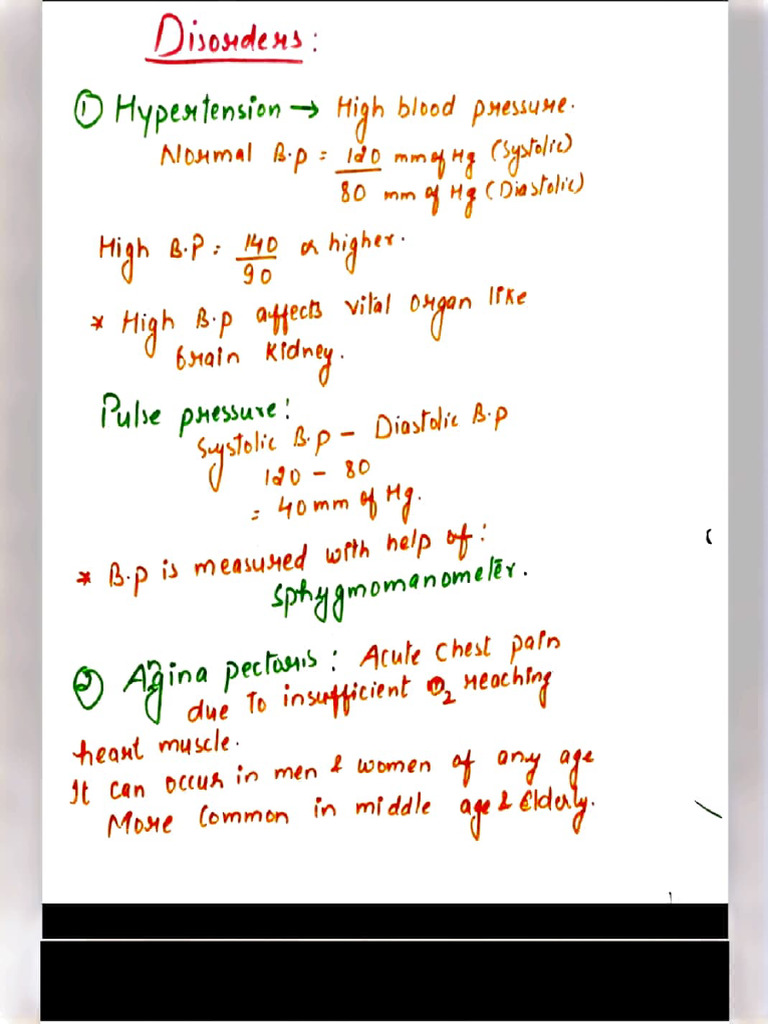 Disorders:
① Hypertension → High blood pressure.
Normal B.p = 120 mm of Hg (Systolic)
80 mm of Hg (Diastolic)
High B.P = 140 or higher.
90
* High B.p affects vital organ like
brain kidney.
Pulse pressure:
Systolic B.p - Diastolic B.p
120 - 80
= 40 mm of Hg.
* B.p is measured with help of:
Sphygmomanometer.
② Angina pectoris: Acute chest pain
due to insufficient O₂ reaching
heart muscle.
It can occur in men & women of any age
More common in middle age & Elderly.